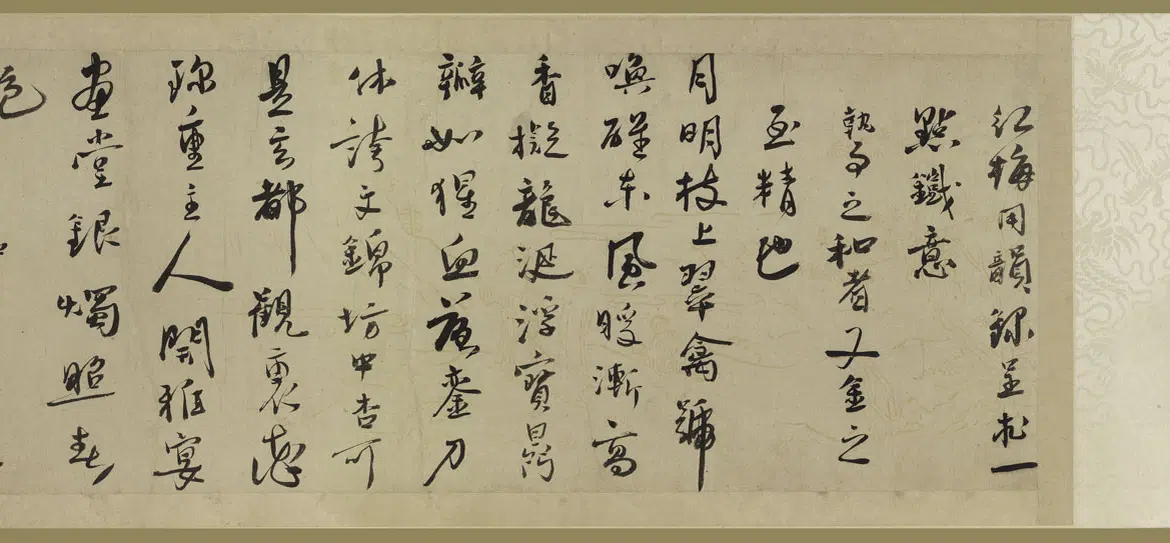 紅梅用韻錄呈求一
點鐵意
執事之和者又金之
至精也
月明枝上翠禽號
喚醒東風暖漸高
香擬龍涎浮寶鼎
瓣如猩血落鸞刀
休誇文錦坊中杏可
是玄都觀裏桃
珍重主人開雅宴
畫堂銀燭照春